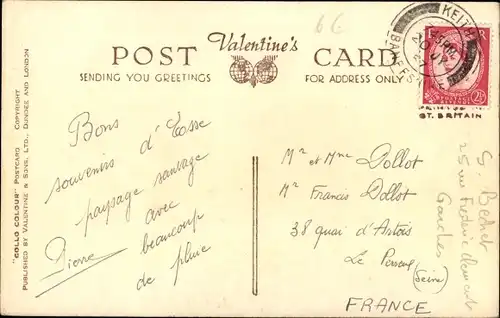 66
POST Valentine's CARD
SENDING YOU GREETINGS FOR ADDRESS ONLY
KEITH
BANFFSH
E R
2½
ST. BRITAIN
"COLLO COLOUR" POSTCARD COPYRIGHT
PUBLISHED BY VALENTINE & SONS, LTD., DUNDEE AND LONDON
Bons
souvenirs d'Ecosse
paysage sauvage
avec
beaucoup
de pluie
Pierre
Mr et Mme Dollot
Mr Francis Dollot
38 quai d'Artois
Le Perreux
(Seine)
FRANCE
25 rue
Garches